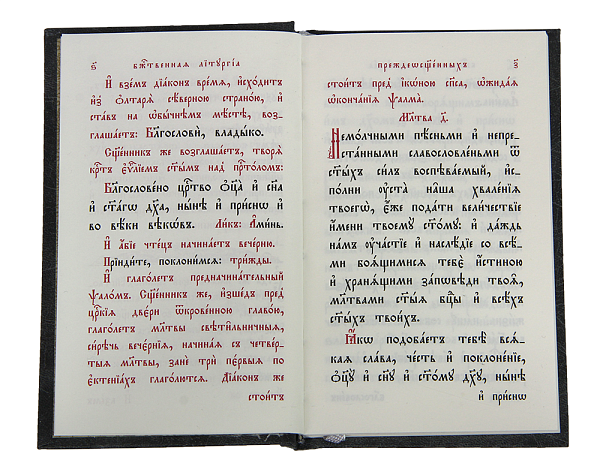 ѕ҃ бж҃твенная лїтꙋргі́а
И҆ взе́мъ дїа́конъ вре́мѧ, и҆схо́дитъ
и҆з̾ ѻ҆лтарѧ̀ сѣ́верною страно́ю, и҆
ста́въ на ѡ҆бы́чнѣмъ мѣ́стѣ, воз-
глаша́етъ: Благословѝ, влады́ко.
Сщ҃е́нникъ же возглаша́етъ, творѧ̀
крⷭ҇тъ є҆ѵⷢ҇лїемъ ст҃ы́мъ над̾ прⷭ҇то́ломъ:
Бл҃гослове́но црⷭ҇тво ѻ҆ц҃а̀ и҆ сн҃а
и҆ ст҃а́гѡ дх҃а, ны́нѣ и҆ при́снѡ и҆
во вѣ́ки вѣкѡ́въ. Ли́къ: А҆ми́нь.
И҆ а҆́бїе чте́цъ начина́етъ вече́рню.
Прїиди́те, поклони́мсѧ: три́жды.
И҆ глаго́летъ предначина́тельный
ѱало́мъ. Сщ҃е́нникъ же, и҆зше́дъ пред̾
цр҃кїѧ две́ри ѿкрове́нною главо́ю,
глаго́летъ мл҃твы свѣти́льничныѧ,
си́рѣчь вече́рнїѧ, начина́ѧ с̾ четве́р-
тыѧ мл҃твы, занѐ трѝ пе́рвыѧ по
є҆ктенїа́хъ глаго́лютсѧ. Дїа́конъ же
стои́тъ
преждеѡсщ҃е́нныхъ з҃
стои́тъ пред̾ і҆кѡ́ною сп҃са, ѡ҆жида́ѧ
ѡ҆конча́нїѧ ѱалма̀.
Мл҃тва д҃.
Немо́лчными пѣ́сньми и҆ непре-
ста́нными славословле́ньми ѿ
ст҃ы́хъ си́лъ воспѣва́емый, и҆с-
по́лни ᲂу҆ста̀ на̑ша хвале́нїѧ
твоегѡ̀, є҆́же пода́ти вели́чествїе
и҆́мени твоемꙋ̀ ст҃о́мꙋ: и҆ да́ждь
на́мъ ᲂу҆ча́стїе и҆ наслѣ́дїе со всѣ́-
ми боѧ́щимисѧ тебє̀ и҆́стиною
и҆ хранѧ́щими за́пѡвѣди твоѧ̑,
мл҃твами ст҃ы́ѧ бцⷣы и҆ всѣ́хъ
ст҃ы́хъ твои́хъ.
Ꙗ҆́кѡ подоба́етъ тебѣ̀ всѧ́-
каѧ сла́ва, че́сть и҆ поклоне́нїе,
ѻ҆ц҃ꙋ̀ и҆ сн҃ꙋ и҆ ст҃о́мꙋ дх҃ꙋ, ны́нѣ
и҆ при́снѡ